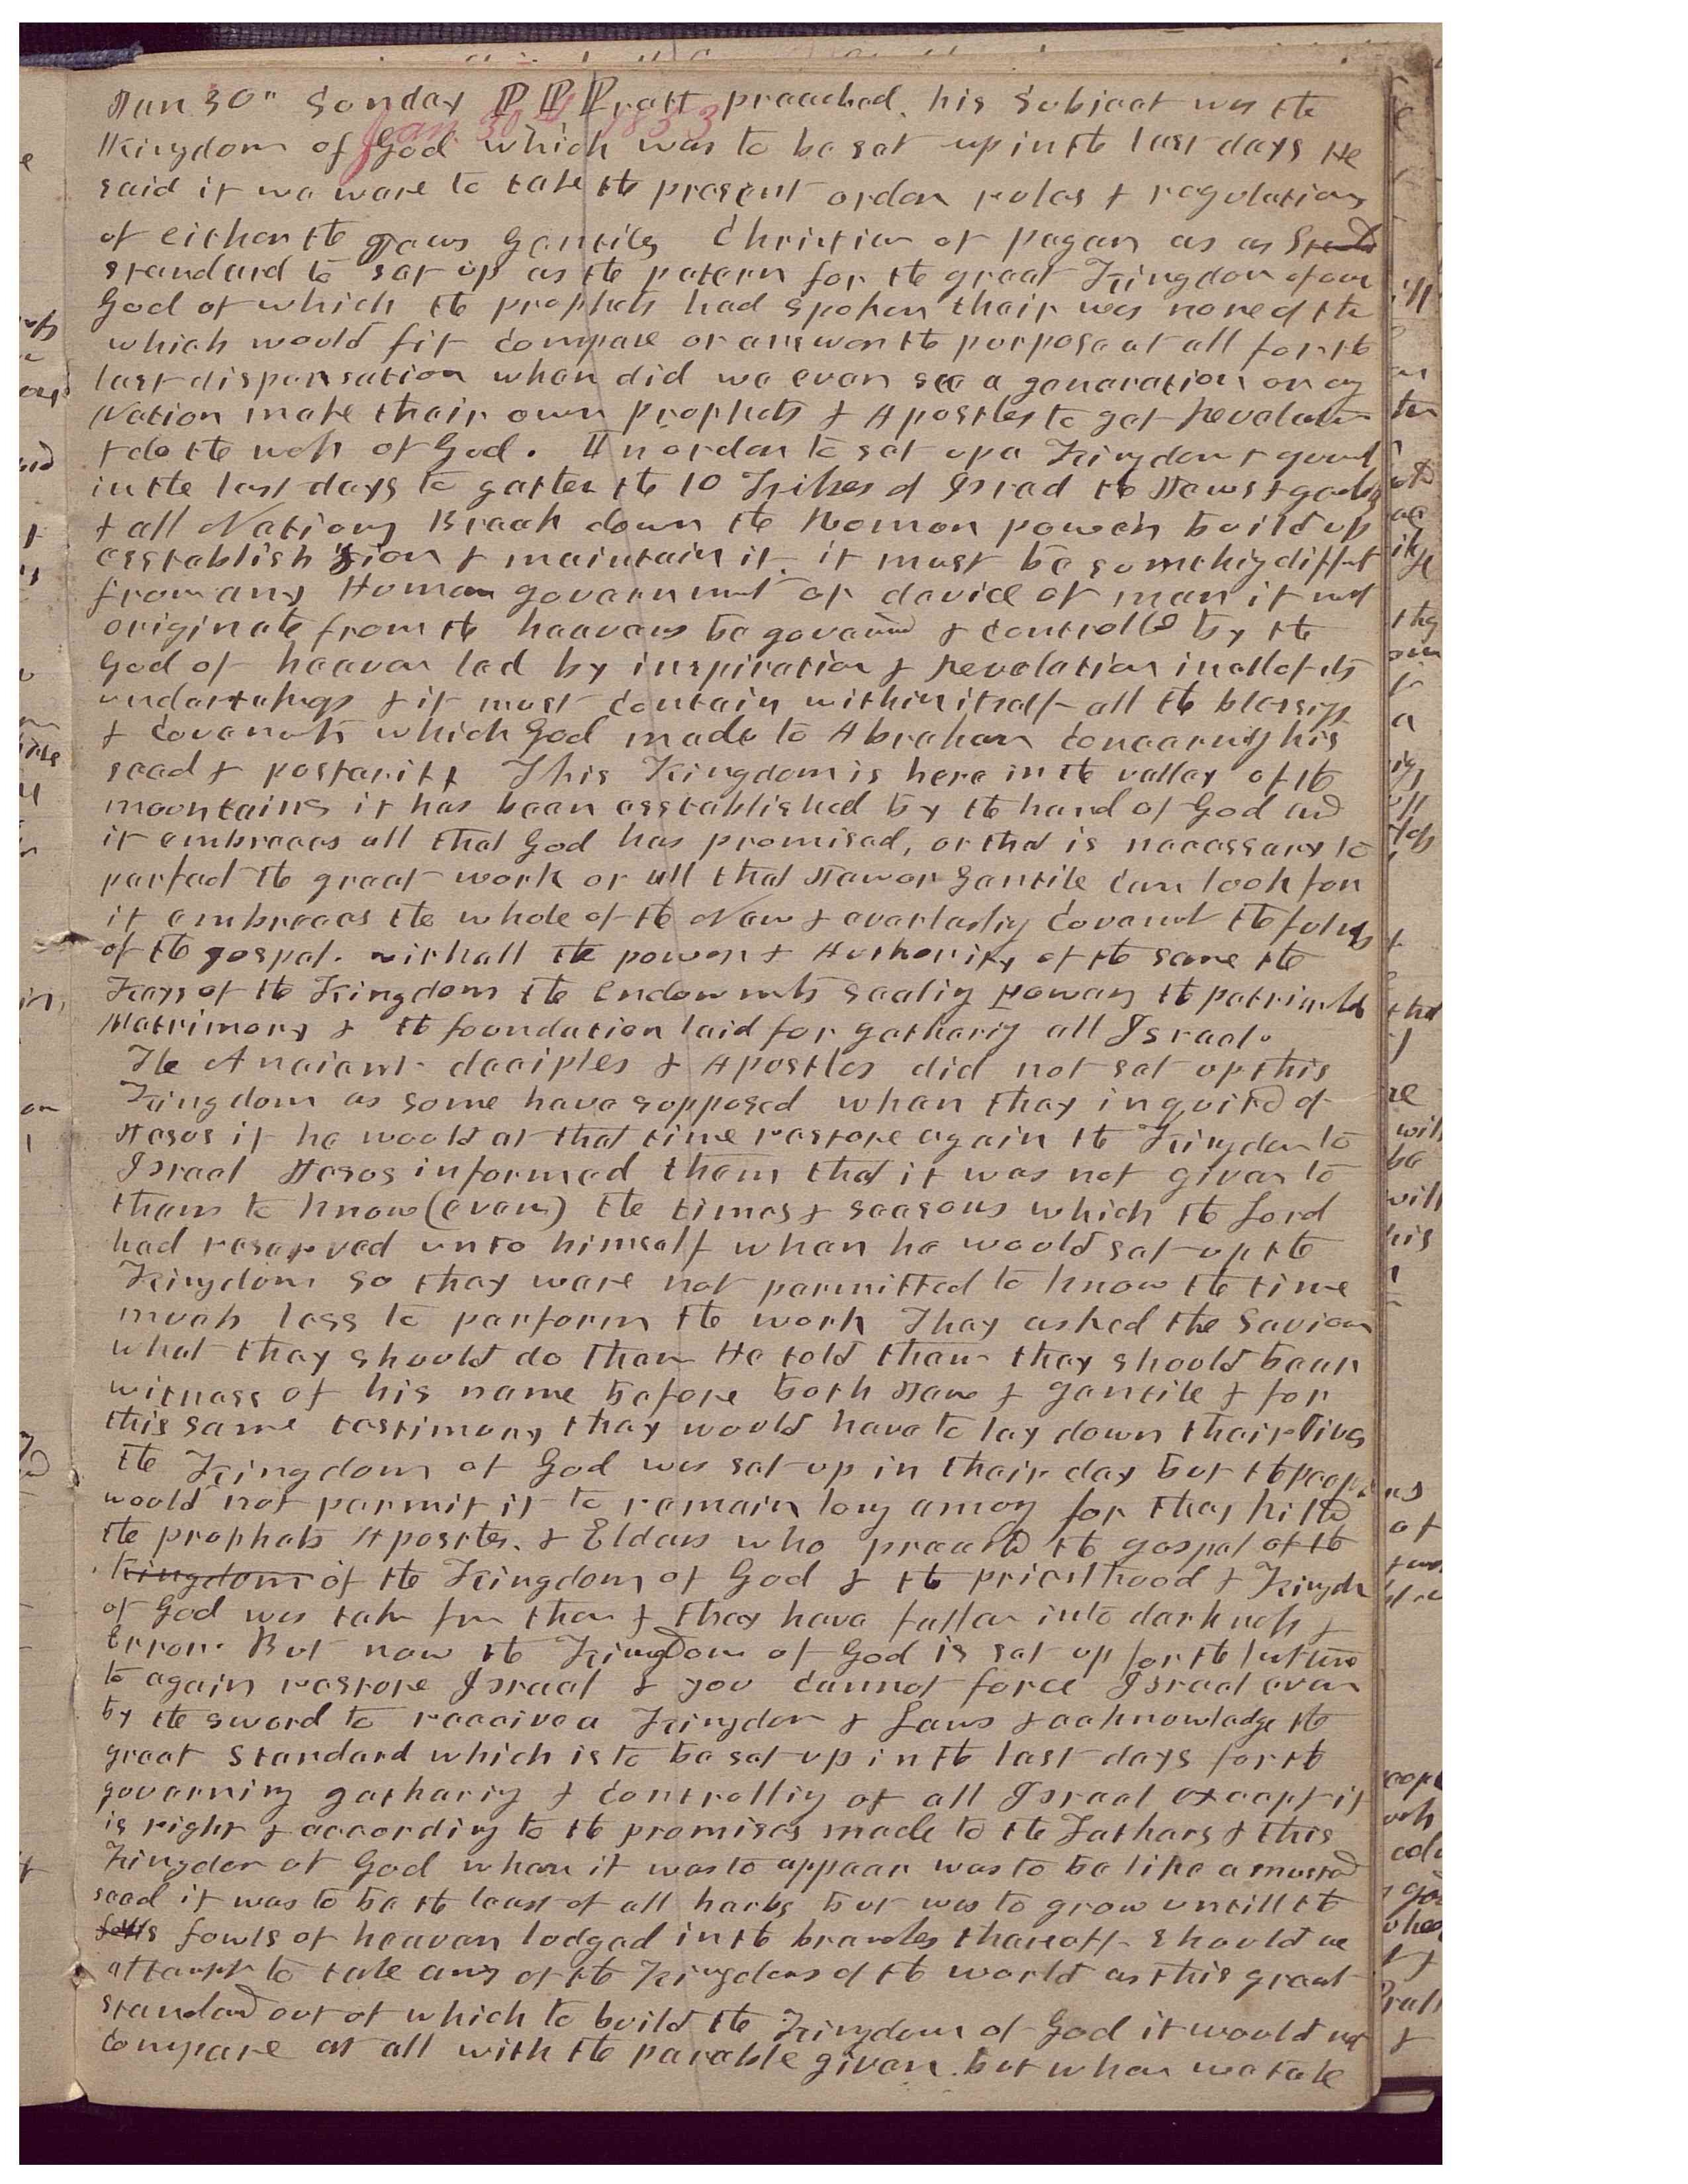 Jan 30" Sunday P P Pratt preached. his subject was the
Jan 30th 1853
Kingdom of God which was to be set up in the last days He
said if we ware to take the present order rules & regulations
of either the Jews Gentiles Christian or pagan as as Stand
standard to set up as the patern for the great Kingdom of our
God of which the prophets had spoken thair was none of the
which would fit compare or answer the purpose at all for the
last dispensation when did we ever see a generation or any
Nation make thair own Prophets & Apostles to get Revelation
& do the work of God. In order to set up a Kingdom & govmt
in the last days to gather the 10 Tribes of Israel the Jews & gentiles
& all Nations Break down the Roman power build up
esstablish Zion & maintain it. it must be somthig different
from any Human government or device of man it must
originate from the heavens be governed & controlled by the
God of heaven led by inspiration & Revelation in all of its
undertakings & it must contain within itself all the blessigs
& Covenants which God made to Abraham concernig his
seed & posterity This Kingdom is here in the valley of the
mountains it has been esstablished by the hand of God and
it embraces all that God has promised, or that is necessary to
perfect the great work or all that Jew or Gentile can look for
it embraces the whole of the New & everlastig Covenant the fulness
of the gospel. with all the power & Authority of the same the
Keys of the Kingdom the Endowmts sealig Powers the patriarchal
Matrimony & the foundation laid for gatherig all Israel.
The Ancient deciples & Apostles did not set up this
Kingdom as some have supposed when they inquired of
Jesus if he would at that time restore again the Kingdom to
Israel Jesus informed them that it was not given to
them to know (even) the times & seasons which the Lord
had reserved unto himself when he would set up the
Kingdom so they ware not permitted to know the time
much less to perform the work They asked the Saviour
what they should do then He told them they should bear
witness of his name before both Jew & gentile & for
this same testimony they would have to lay down thair lives
the Kingdom of God was set up in thair day but the people
would not permit it to remain long among for they killed
the prophets Apostles. & Elders who preached the gospel of the
Kingdom of the Kingdom of God & the priesthood & Kingdom
of God was taken from them & they have fallen into darkness &
Error. But now the Kingdom of God is set up for the last time
to again restore Israel & you cannot force Israel even
by the sword to receive a Kingdom & Laws & acknowledge the
great Standard which is to be set up in the last days for the
governing gatherig & Controllig of all Israel except it
is right & acccording to the promises made to the Fathers & this
Kingdom of God when it was to appear was to be like a mustard
seed it was to be the least of all herbs but was to grow untill the
fowls of heaven lodged in the branches thereoff should we
attempt to take any of the Kingdoms of the world as this great
standard out of which to build the Kingdom of God it would not
compare at all with the parable given. but when we take